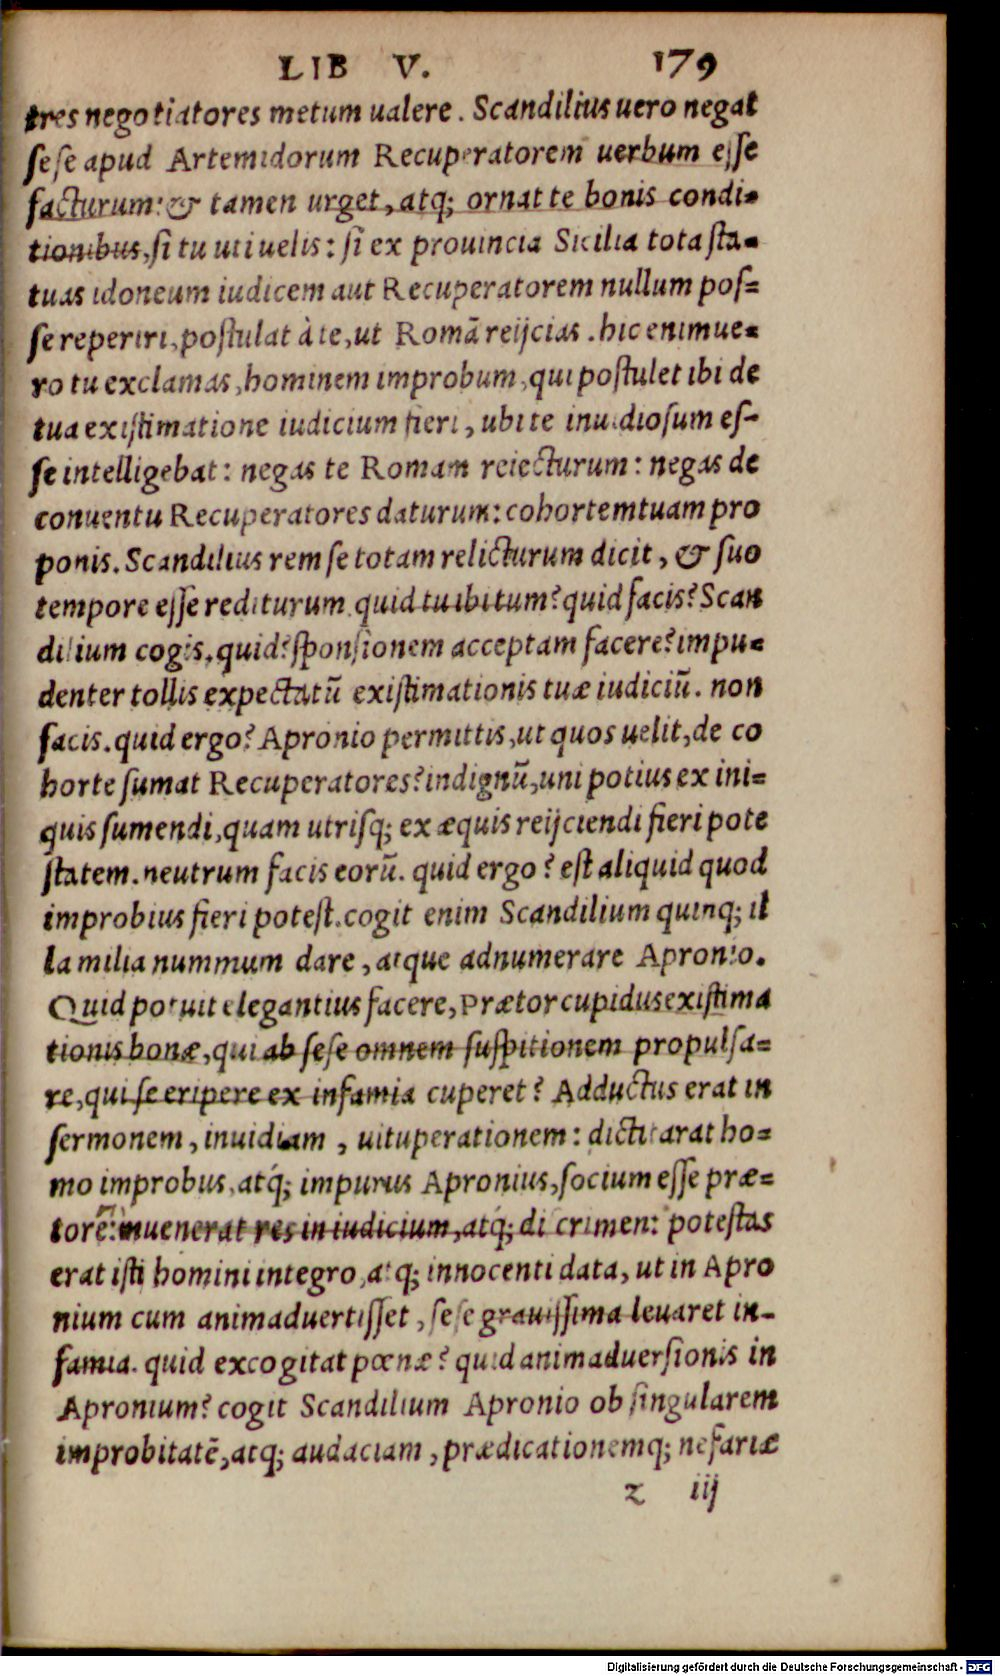 LIB V. 179
tres negotiatores metum ualere. Scandilius uero negat
sese apud Artemidorum Recuperatorem uerbum esse
facturum: & tamen urget, atq; ornat te bonis condi-
tionibus, si tu uti uelis: si ex prouincia Sicilia tota sta-
tuas idoneum iudicem aut Recuperatorem nullum pos-
se reperiri, postulat à te, ut Romã reijcias. hic enimue-
ro tu exclamas, hominem improbum, qui postulet ibi de
tua existimatione iudicium fieri, ubi te inuidiosum es-
se intelligebat: negas te Romam reiecturum: negas de
conuentu Recuperatores daturum: cohortem tuam pro
ponis. Scandilius rem se totam relicturum dicit, & suo
tempore esse rediturum. quid tu ibi tum? quid facis? Scan
dilium cogis. quid? sponsionem acceptam facere? impu-
denter tollis expectatũ existimationis tuæ iudiciũ. non
facis. quid ergo? Apronio permittis, ut quos uelit, de co
horte sumat Recuperatores? indignũ, uni potius ex ini-
quis sumendi, quam utrisq; ex æquis reijciendi fieri pote
statem. neutrum facis eorũ. quid ergo? est aliquid quod
improbius fieri potest. cogit enim Scandilium quinq; il
la milia nummum dare, atque adnumerare Apronio.
Quid potuit elegantius facere, Prætor cupidus existima
tionis bonæ, qui ab sese omnem suspitionem propulsa-
re, qui se eripere ex infamia cuperet? Adductus erat in
sermonem, inuidiam, uituperationem: dictitarat ho-
mo improbus, atq́; impurus Apronius, socium esse præ-
torẽ: inuenerat res in iudicium, atq́; di crimen: potestas
erat isti homini integro, atq; innocenti data, ut in Apro
nium cum animaduertisset, sese grauissima leuaret in-
famia. quid excogitat pœnæ? quid animaduersionis in
Apronium? cogit Scandilium Apronio ob singularem
improbitatẽ, atq; audaciam, prædicationemq; nefariæ
z iij
Digitalisierung gefördert durch die Deutsche Forschungsgemeinschaft - DFG